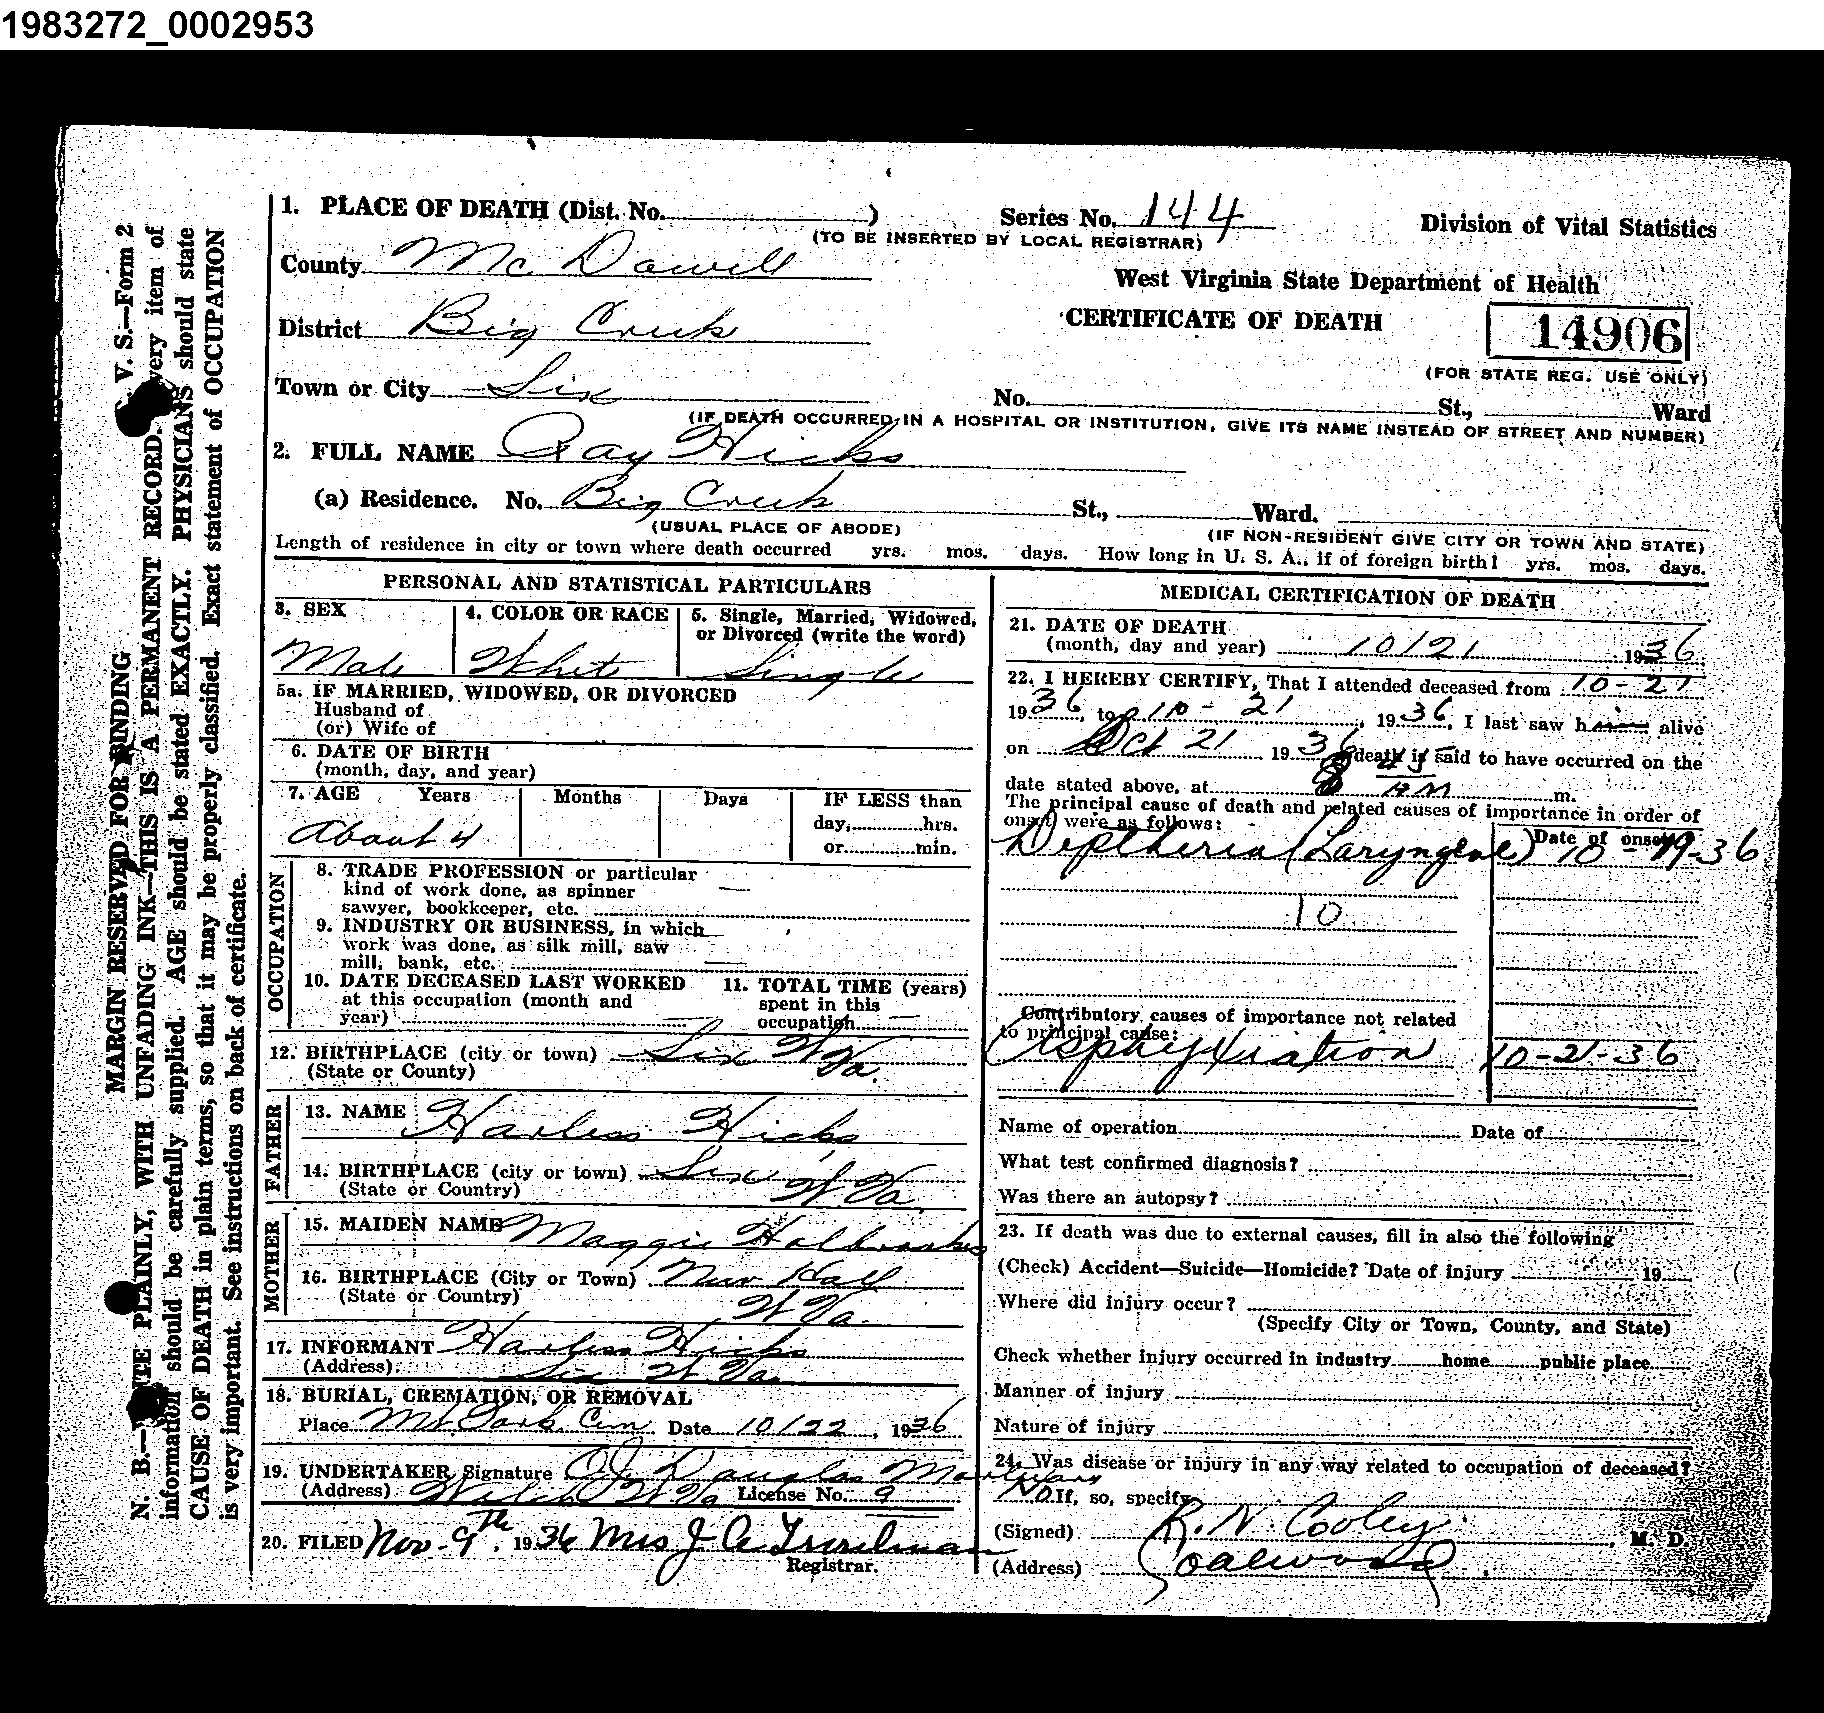 1983272_0002953
V. S.—Form 2
MARGIN RESERVED FOR BINDING
N. B.— PLAINLY, WITH UNFADING INK—THIS IS A PERMANENT RECORD. very item of
information should be carefully supplied. AGE should be stated EXACTLY. PHYSICIANS should state
CAUSE OF DEATH in plain terms, so that it may be properly classified. Exact statement of OCCUPATION
is very important. See instructions on back of certificate.
1. PLACE OF DEATH (Dist. No. )
Series No. 144
(TO BE INSERTED BY LOCAL REGISTRAR)
Division of Vital Statistics
County Mc Dowell
West Virginia State Department of Health
CERTIFICATE OF DEATH
14906
(FOR STATE REG. USE ONLY)
District Big Creek
Town or City Six
No. St., Ward
(IF DEATH OCCURRED IN A HOSPITAL OR INSTITUTION, GIVE ITS NAME INSTEAD OF STREET AND NUMBER)
2. FULL NAME Ray Hicks
(a) Residence. No. Big Creek St., Ward.
(USUAL PLACE OF ABODE)
(IF NON-RESIDENT GIVE CITY OR TOWN AND STATE)
Length of residence in city or town where death occurred yrs. mos. days. How long in U. S. A., if of foreign birth? yrs. mos. days.
PERSONAL AND STATISTICAL PARTICULARS
3. SEX
Male
4. COLOR OR RACE
White
5. Single, Married, Widowed,
or Divorced (write the word)
Single
5a. IF MARRIED, WIDOWED, OR DIVORCED
Husband of
(or) Wife of
6. DATE OF BIRTH
(month, day, and year)
7. AGE Years Months Days IF LESS than
day, hrs.
or min.
About 4
OCCUPATION
8. TRADE PROFESSION or particular
kind of work done, as spinner
sawyer, bookkeeper, etc. —
9. INDUSTRY OR BUSINESS, in which
work was done, as silk mill, saw
mill, bank, etc. —
10. DATE DECEASED LAST WORKED
at this occupation (month and
year) —
11. TOTAL TIME (years)
spent in this
occupation —
12. BIRTHPLACE (city or town) Six W Va.
(State or County)
FATHER
13. NAME Harless Hicks
14. BIRTHPLACE (city or town) Six
(State or Country) W Va.
MOTHER
15. MAIDEN NAME Maggie Holbrooks
16. BIRTHPLACE (City or Town) New Hall
(State or Country) W Va.
17. INFORMANT Harless Hicks
(Address) Six W Va
18. BURIAL, CREMATION, OR REMOVAL
Place Cem Date 10/22, 1936
19. UNDERTAKER Signature Douglas Mortuary
(Address) Welch W Va License No. 9
20. FILED Nov. 9th. 1936 Mrs J
Registrar.
MEDICAL CERTIFICATION OF DEATH
21. DATE OF DEATH
(month, day and year) 10/21 1936
22. I HEREBY CERTIFY, That I attended deceased from 10-21
1936, to 10-21, 1936, I last saw him alive
on Oct 21 1936 death is said to have occurred on the
date stated above, at 8 45 AM m.
The principal cause of death and related causes of importance in order of
onset were as follows:
Date of onset
Diptheria (Laryngeal) 10-19-36
10
Contributory causes of importance not related
to principal cause:
Asphyxiation 10-21-36
Name of operation Date of
What test confirmed diagnosis?
Was there an autopsy?
23. If death was due to external causes, fill in also the following
(Check) Accident—Suicide—Homicide? Date of injury 19
Where did injury occur?
(Specify City or Town, County, and State)
Check whether injury occurred in industry home public place
Manner of injury
Nature of injury
24. Was disease or injury in any way related to occupation of deceased?
No If, so, specify
(Signed) R. N. Cooley, M. D.
(Address) Coalwood